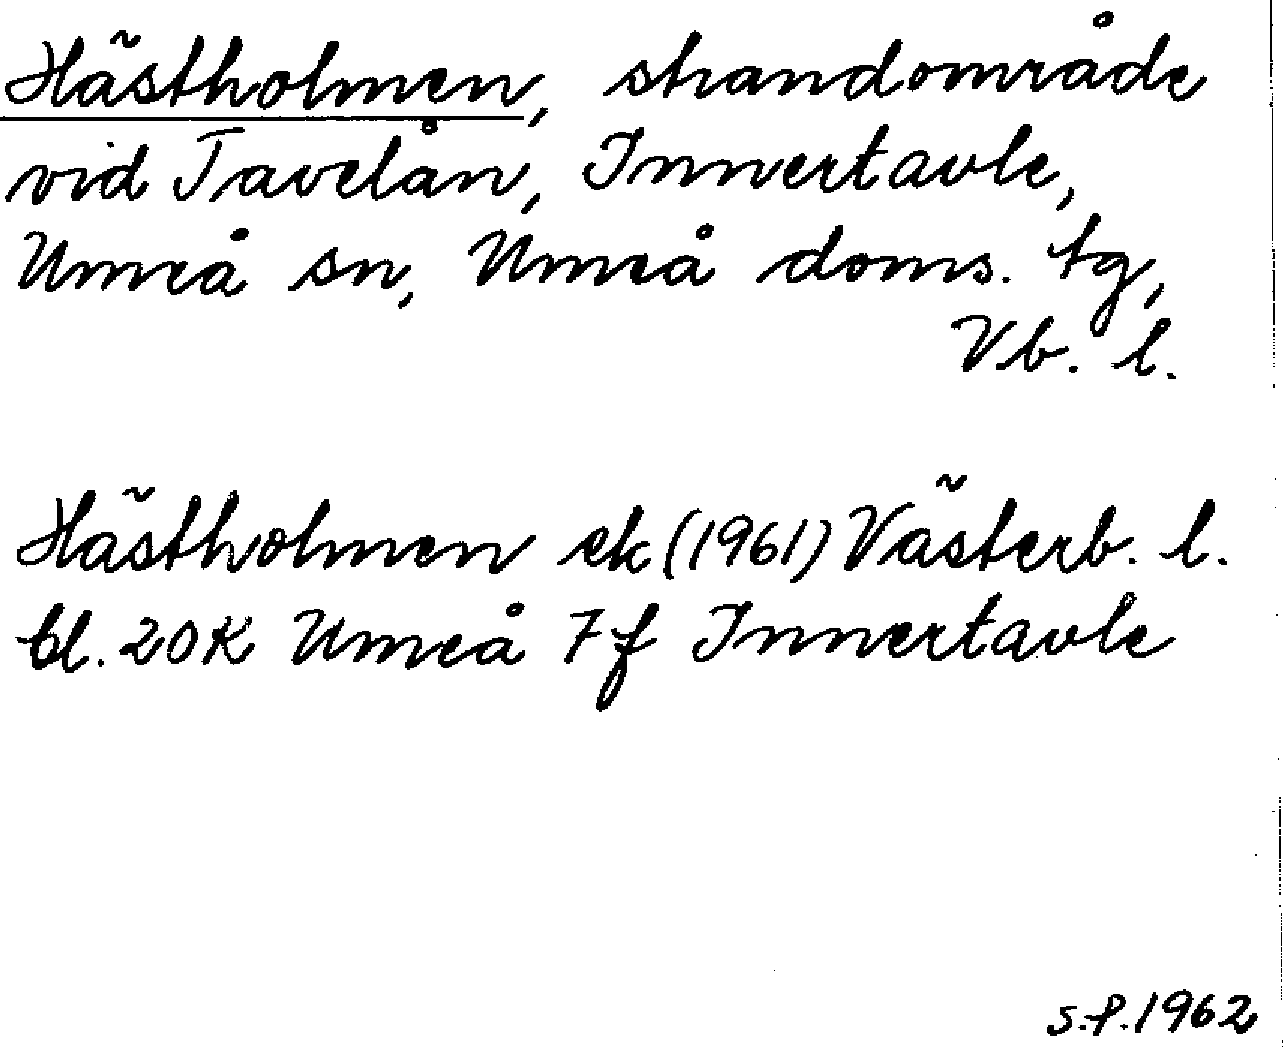 Hästholmen, strandområde
vid Tavelån, Innertavle,
Umeå sn, Umeå doms. tg,
Vb. l.
Hästholmen ek (1961) Västerb. l.
bl. 20K Umeå 7f Innertavle
s.f. 1962